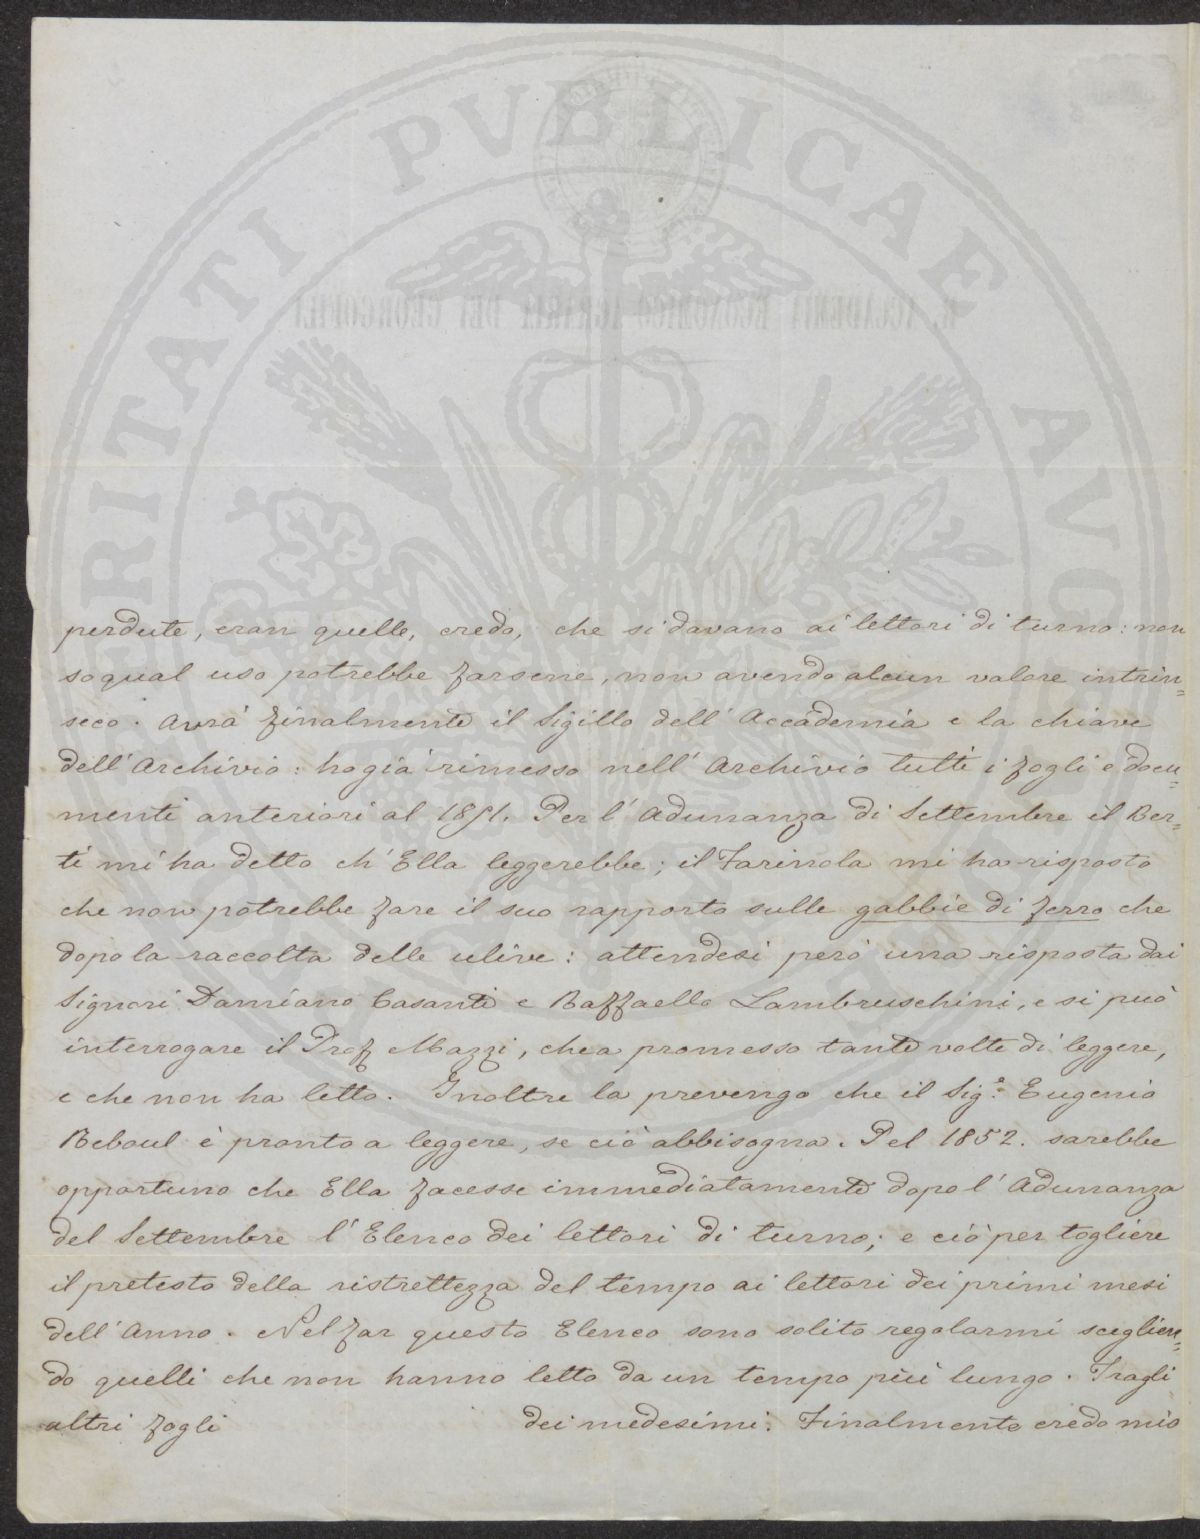 PROSPERITATI PVBLICAE AVGENDAE
R. ACCADEMIA ECONOMICO AGRARIA DEI GEORGOFILI
perdute, eran quelle, credo, che si davano ai lettori di turno: non
so qual uso potrebbe farsene, non avendo alcun valore intrin=
seco. Avrà finalmente il Sigillo dell'Accademia e la chiave
dell'Archivio: ho già rimesso nell'Archivio tutti i fogli e docu=
menti anteriori al 1851. Per l'Adunanza di Settembre il Ber=
ti mi ha detto ch'Ella leggerebbe; il Farinola mi ha risposto
che non potrebbe fare il suo rapporto sulle gabbie di ferro che
dopo la raccolta delle ulive: attendesi però una risposta dai
Signori Damiano Casanti e Raffaello Lambruschini, e si può
interrogare il Prof Mazzi, che a promesso tante volte di leggere,
e che non ha letto. Inoltre la prevengo che il Sig.e Eugenio
Reboul è pronto a leggere, se ciò abbisogna. Pel 1852. sarebbe
opportuno che Ella facesse immediatamente dopo l'Adunanza
del Settembre l'Elenco dei lettori di turno; e ciò per togliere
il pretesto della ristrettezza del tempo ai lettori dei primi mesi
dell'Anno. Nel far questo Elenco sono solito regolarmi sceglien=
do quelli che non hanno letto da un tempo più lungo. Fragli
altri fogli dei medesimi. Finalmente credo mio